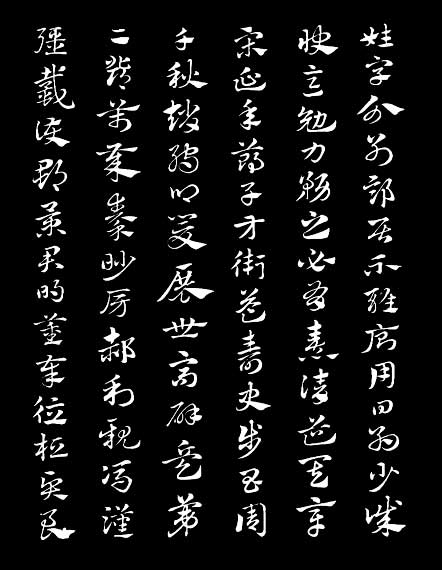 姓字分別部居不雜廁用日約少誠
快意勉力務之必有憙請道其章
宋延年鄭子方衛益壽史步昌周
千秋趙孺卿爰展世高辟兵第
二鄧萬歲秦眇房郝利親馮漢
彊戴護郡景君明董奉德桓賢良